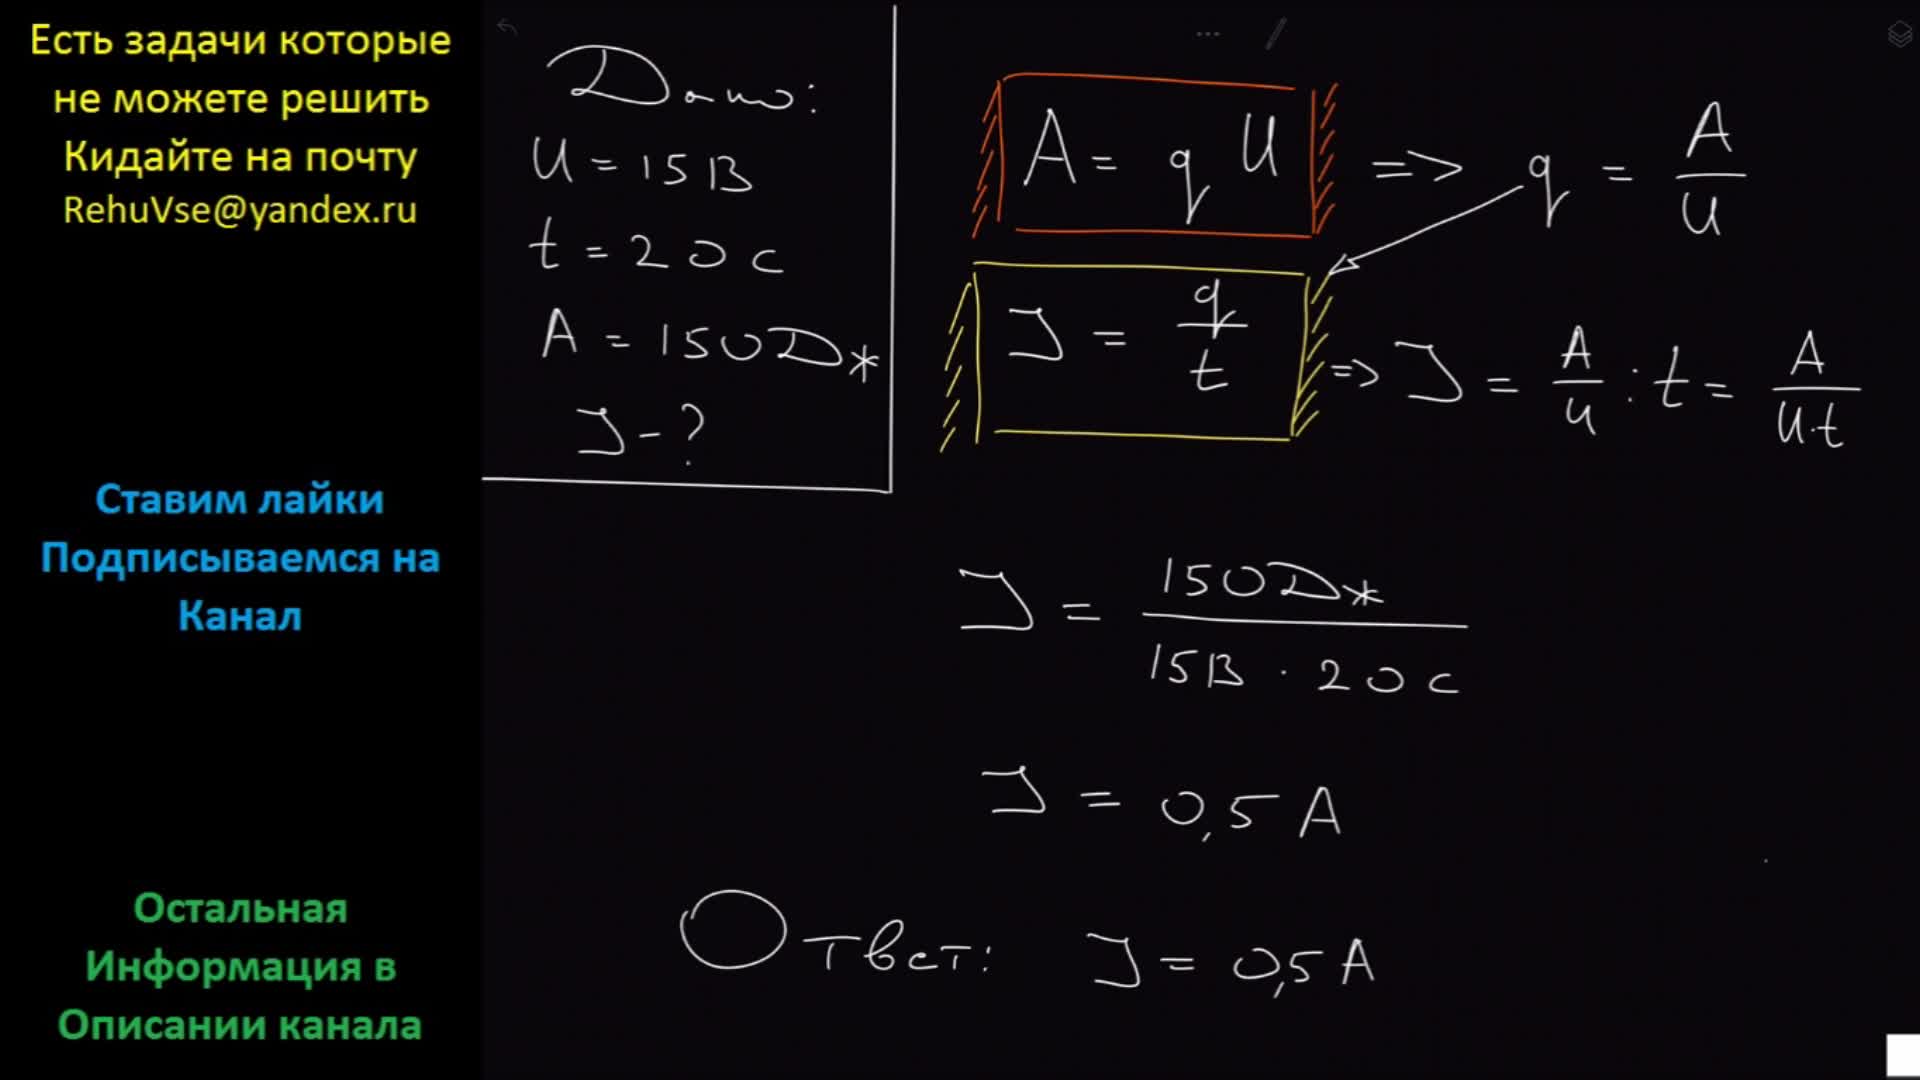 Есть задачи которые
не можете решить
Кидайте на почту
RehuVse@yandex.ru
Ставим лайки
Подписываемся на
Канал
Остальная
Информация в
Описании канала
Дано:
U = 15 В
t = 20 с
A = 150 Дж
J - ?
A = q U => q = A/U
J = q/t => J = A/U : t = A/(U·t)
J = 150 Дж/(15 В · 20 с)
J = 0,5 A
Ответ: J = 0,5 A